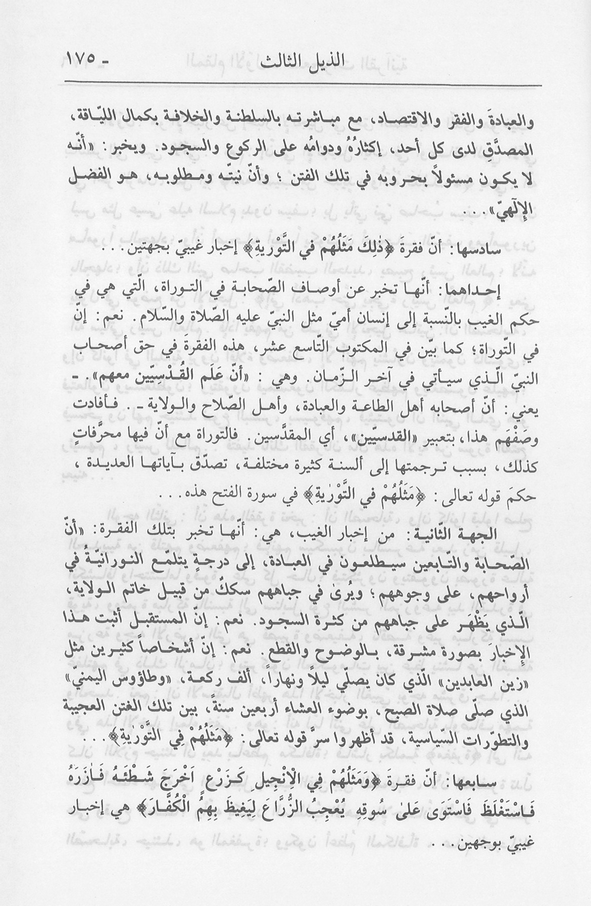 الذيل الثالث
ـ ١٧٥
والعبادةَ والفقر والاقتصاد، مع مباشرته بالسلطنة والخلافة بكمال الليّاقة،
المصدَّق لدى كل أحد، إكثارُهُ ودوامُه على الركوع والسجود. ويخبر: «أنّه
لا يكون مسئولاً بحروبه في تلك الفتن؛ وأنّ نيته ومطلوبه، هو الفضل
الإلٓهيّ»...
سادسها: أنّ فقرةَ ﴿ذٰلِكَ مَثَلُهُمْ في التَّوْرٰيةِ﴾ إخبار غيبيّ بجهتين...
إحداهما: أنّها تخبر عن أوصاف الصّحابة في التوراة، الّتي هي في
حكم الغيب بالنّسبة إلى إنسان أميّ مثل النبيّ عليه الصلاة والسّلام. نعم: إنّ
في التوراة؛ كما بيّن في المكتوب التّاسع عشر، هذه الفقرة في حق أصحاب
النبيّ الّذي سيأتي في آخر الزّمان. وهي: «أنّ عَلَم القُدْسِيّين معهم». ـ
يعني: أنّ أصحابه أهل الطاعة والعبادة، وأهل الصّلاح والولاية ـ. فأفادت
وصْفَهم هذا، بتعبير «القدسيّين»، أي المقدَّسين. فالتوراة مع أنّ فيها محرَّفاتٍ
كذلك، بسبب ترجمتها إلى ألسنة كثيرة مختلفة، تصدّق بآياتها العديدة،
حكمَ قوله تعالى: ﴿مَثَلُهُمْ في التَّوْرٰيةِ﴾ في سورة الفتح هذه...
الجهة الثّانية: من إخبار الغيب، هي: أنّها تخبر بتلك الفقرة: «أنّ
الصّحابة والتّابعين سيطلعون في العبادة، إلى درجةٍ يتلمّع النورانيّة في
أرواحهم، على وجوههم؛ ويرىٰ في جباههم سككٌ من قبيل خاتم الولاية،
الّذي يَظْهَر على جباههم من كثرة السجود. نعم: إنّ المستقبل أثبت هذا
الإخبارَ بصورة مشرقة، بالوضوح والقطع. نعم: إنّ أشخاصاً كثيرين مثل
«زين العابدين» الّذي كان يصلّي ليلاً ونهاراً، ألف ركعة، «وطاؤوس اليمنيّ»
الذي صلّى صلاة الصبح، بوضوء العشاء أربعين سنة، بين تلك الفتن العجيبة
والتطوّرات السّياسية، قد أظهروا سرَّ قوله تعالى: ﴿مَثَلُهُمْ فِي التَّوْرٰيةِ﴾...
سابعها: أنّ فقرة ﴿وَمَثَلُهُمْ فِي الْاِنْجِيلِ كَزَرْعٍ اَخْرَجَ شَطْئَهُ فَاٰزَرَهُ
فَاسْتَغْلَظَ فَاسْتَوَى عَلٰى سُوقِهِ يُعْجِبُ الزُّرَّاعَ لِيَغِيظَ بِهِمُ الْكُفَّارَ﴾ هي إخبار
غيبيّ بوجهين...